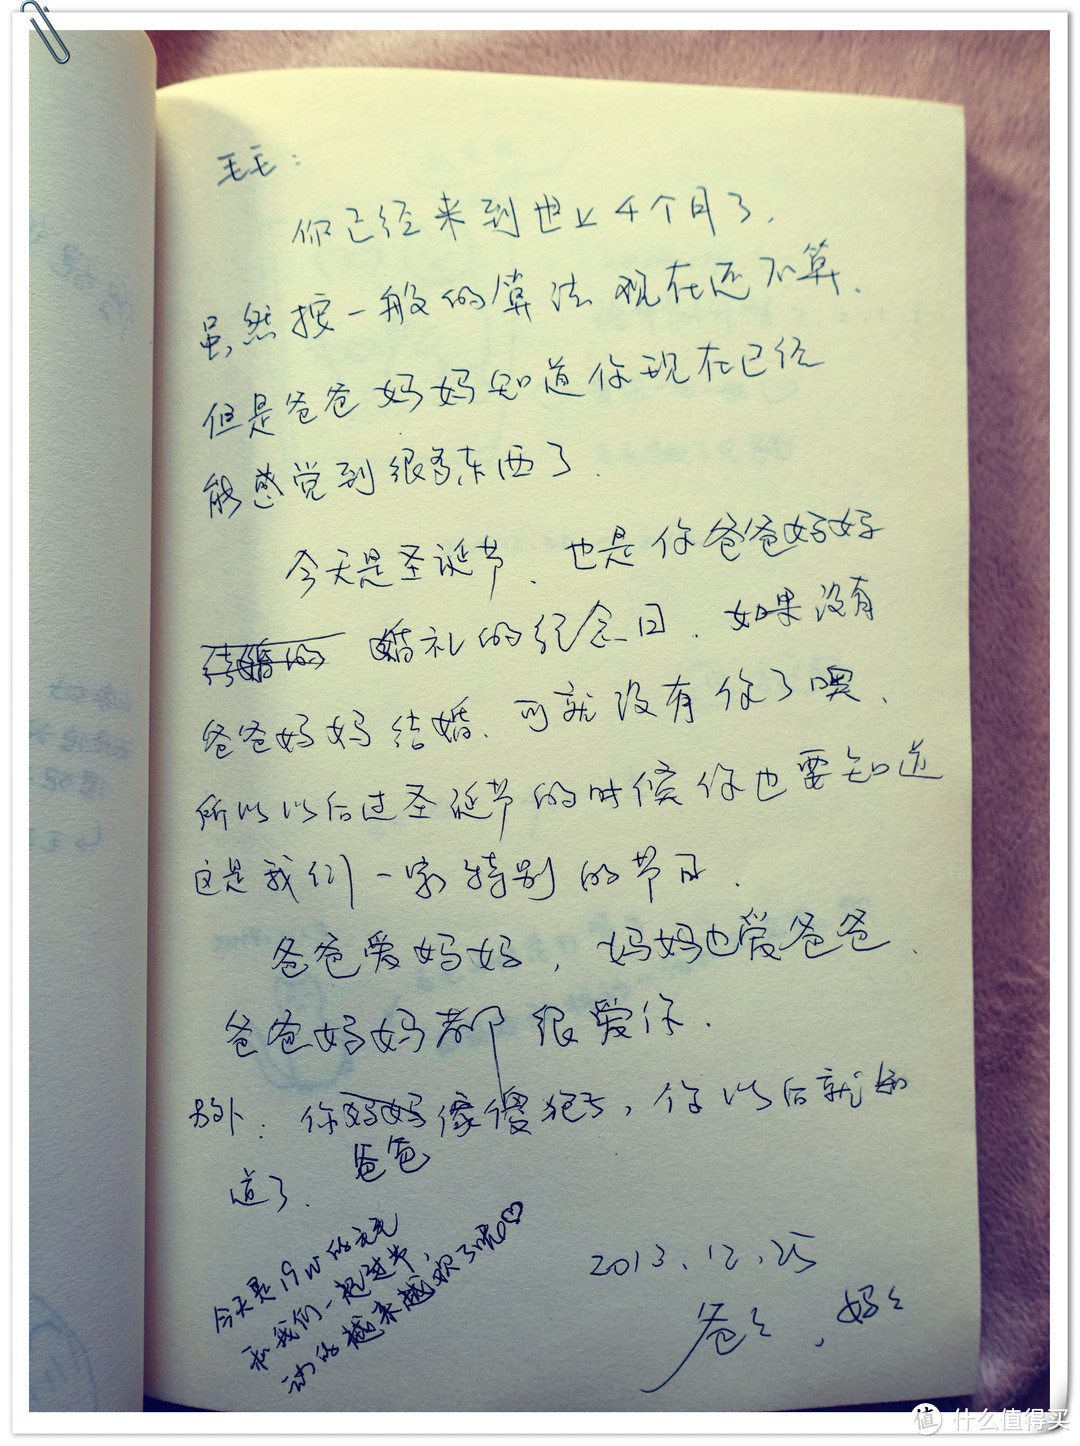 毛毛：
你已经来到世上4个月了，
虽然按一般的算法现在还不算，
但是爸爸妈妈知道你现在已经
能感觉到很多东西了．
今天是圣诞节、也是你爸爸妈妈
结婚的 婚礼的纪念日．如果没有
爸爸妈妈结婚、可就没有你了噢、
所以以后过圣诞节的时候你也要知道
这是我们一家特别的节日．
爸爸爱妈妈，妈妈也爱爸爸、
爸爸妈妈都很爱你．
另外：你妈妈像傻狍子，你以后就知
爸爸
道了．
今天是19W的毛毛
和我们一起过节，
动的越来越欢了哦♡
2013.12.25
爸爸、妈妈
值 什么值得买